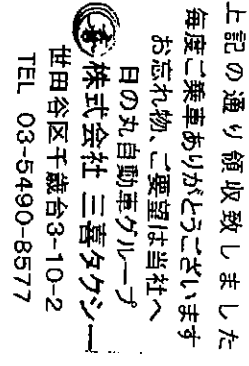 上記の通り領収致しました
毎度ご乗車ありがとうございます
お忘れ物、ご要望は当社へ
日の丸自動車グループ
株式会社 三喜タクシー
世田谷区千歳台3-10-2
TEL 03-5490-8577